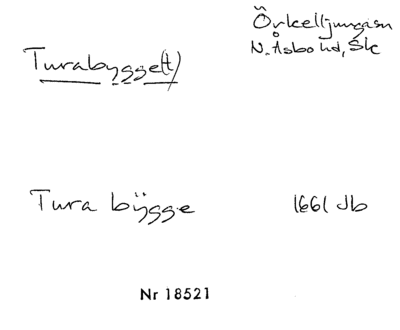 Örkelljunga sn
Turabygge(t)
N. Åsbo hd, Sk
Tura bÿgge 1661 Jb
Nr 18521